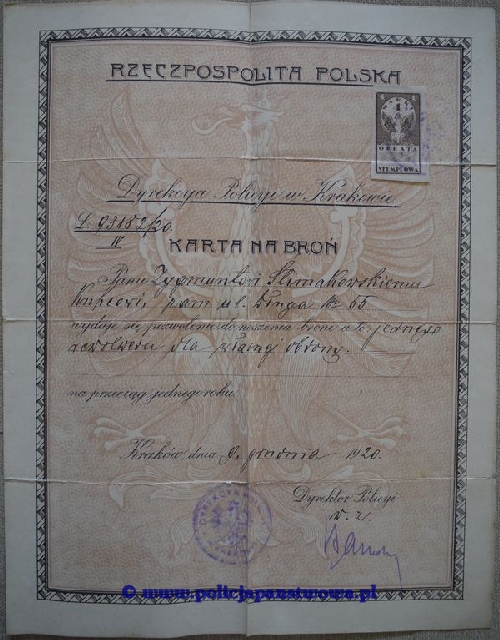 RZECZPOSPOLITA POLSKA
1
OPŁATA
STEMPLOWA
Dyrekcya Policyi w Krakowie
L. 93152/20
IV
KARTA NA BROŃ
Panu Zygmuntowi Slimakowskiemu
kupcowi, zam ul. Długa № 65
wydaje się pozwolenie do noszenia broni a to: jednego
rewolweru dla własnej obrony.
na przeciąg jednego roku.
Kraków dnia 9. grudnia 1920.
Dyrektor Policyi
w. z.
© www.policjapanstwowa.pl